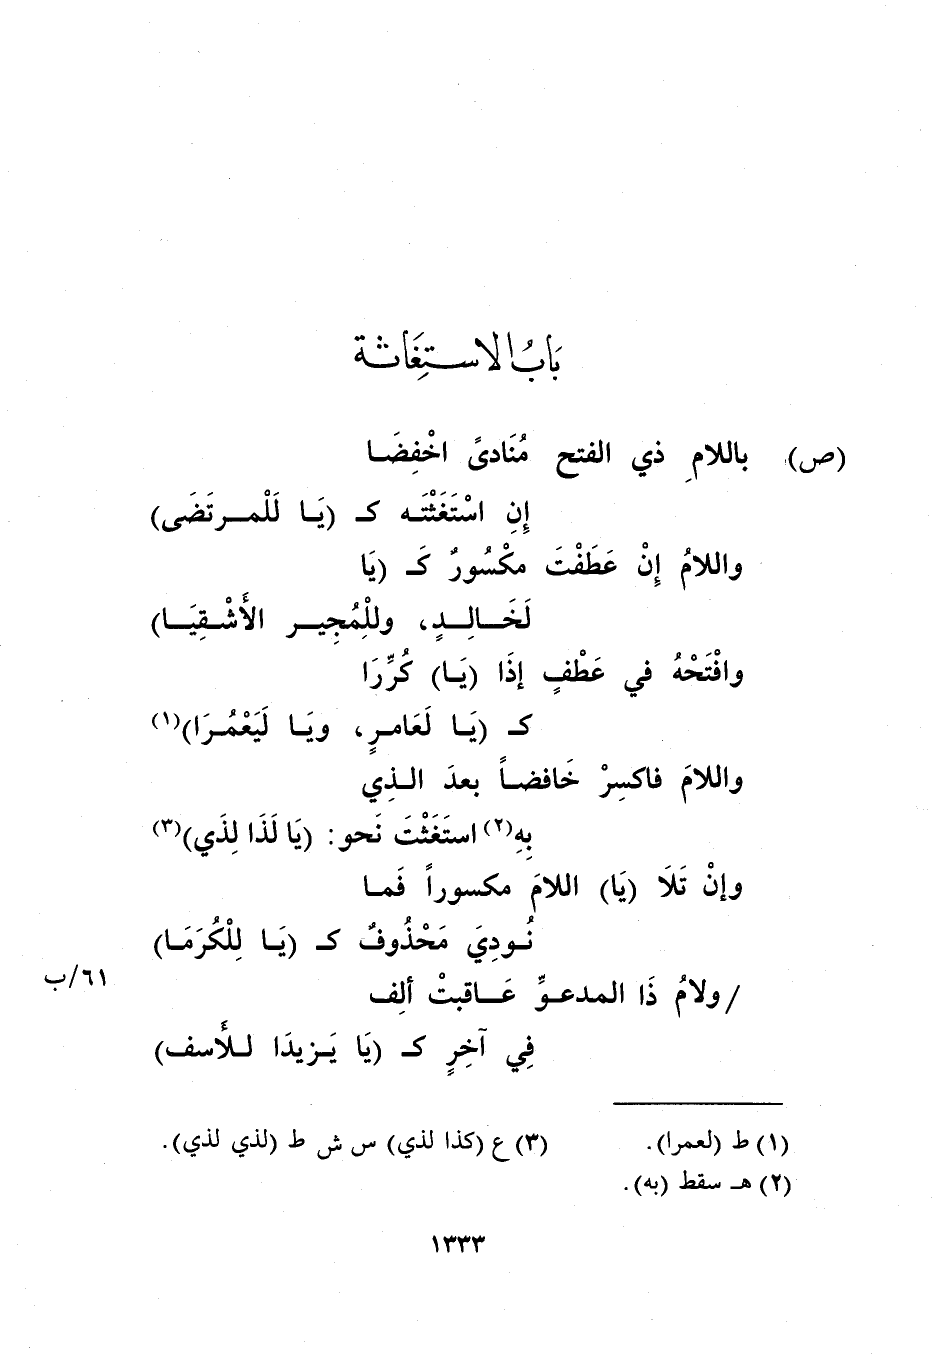 بَابُ الاستِغَاثة
(ص) باللامِ ذي الفتح مُنَادىً اخْفِضَا
إِنِ اسْتَغَثْتَه كـ (يَا لَلْمرتَضَى)
واللامُ إِنْ عَطَفْتَ مكْسُورٌ كَـ (يَا
لَخَالِدٍ، وللْمُجِيرِ الأَشْقِيَا)
وافْتَحْهُ في عَطْفٍ إذَا (يَا) كُرِّرَا
كـ (يَا لَعَامرٍ، ويَا لَيَعْمُرَا)(١)
واللامَ فاكسِرْ خَافضاً بعدَ الذِي
بِهِ(٢) استَغَثْتَ نَحو: (يَا لَذَا لِذَي)(٣)
وإنْ تَلَا (يَا) اللامَ مكسوراً فَما
نُودِيَ مَحْذُوفٌ كـ (يَا لِلْكُرَمَا)
/ ولامُ ذَا المدعوِّ عَاقبتْ ألِف
فِي آخِرٍ كـ (يَا يَزيدَا للأَسف)
٦١/ب
(١) ط (لعمرا).
(٣) ع (كذا لذي) س ش ط (لذي لذي).
(٢) هـ سقط (به).
١٣٣٣